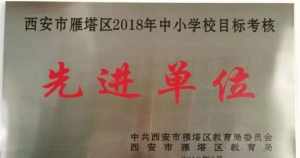 西安市雁塔区2018年中小学校目标考核
先进单位
中共西安市雁塔区教育局委员会
西安市雁塔区教育局